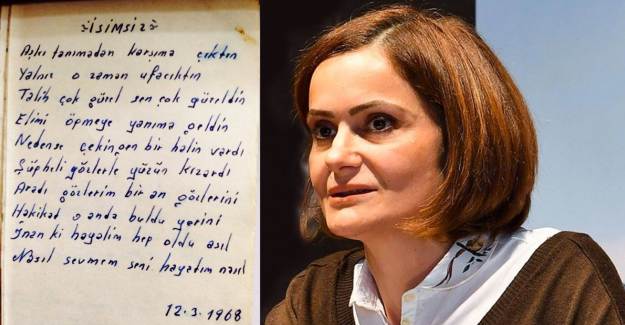 İSİMSİZ
Aşkı tanımadan karşıma çıktın
Yalnız o zaman ufacıktın
Talih çok güzel sen çok güzeldin
Elimi öpmeye yanıma geldin
Nedense çekingen bir halin vardı
Şüpheli gözlerle yüzün kızardı
Aradı gözlerim bir an gözlerini
Hakikad o anda buldu yerini
İnan ki hayalim hep oldu asıl
Nasıl sevmem seni hayatım nasıl
12.3.1968